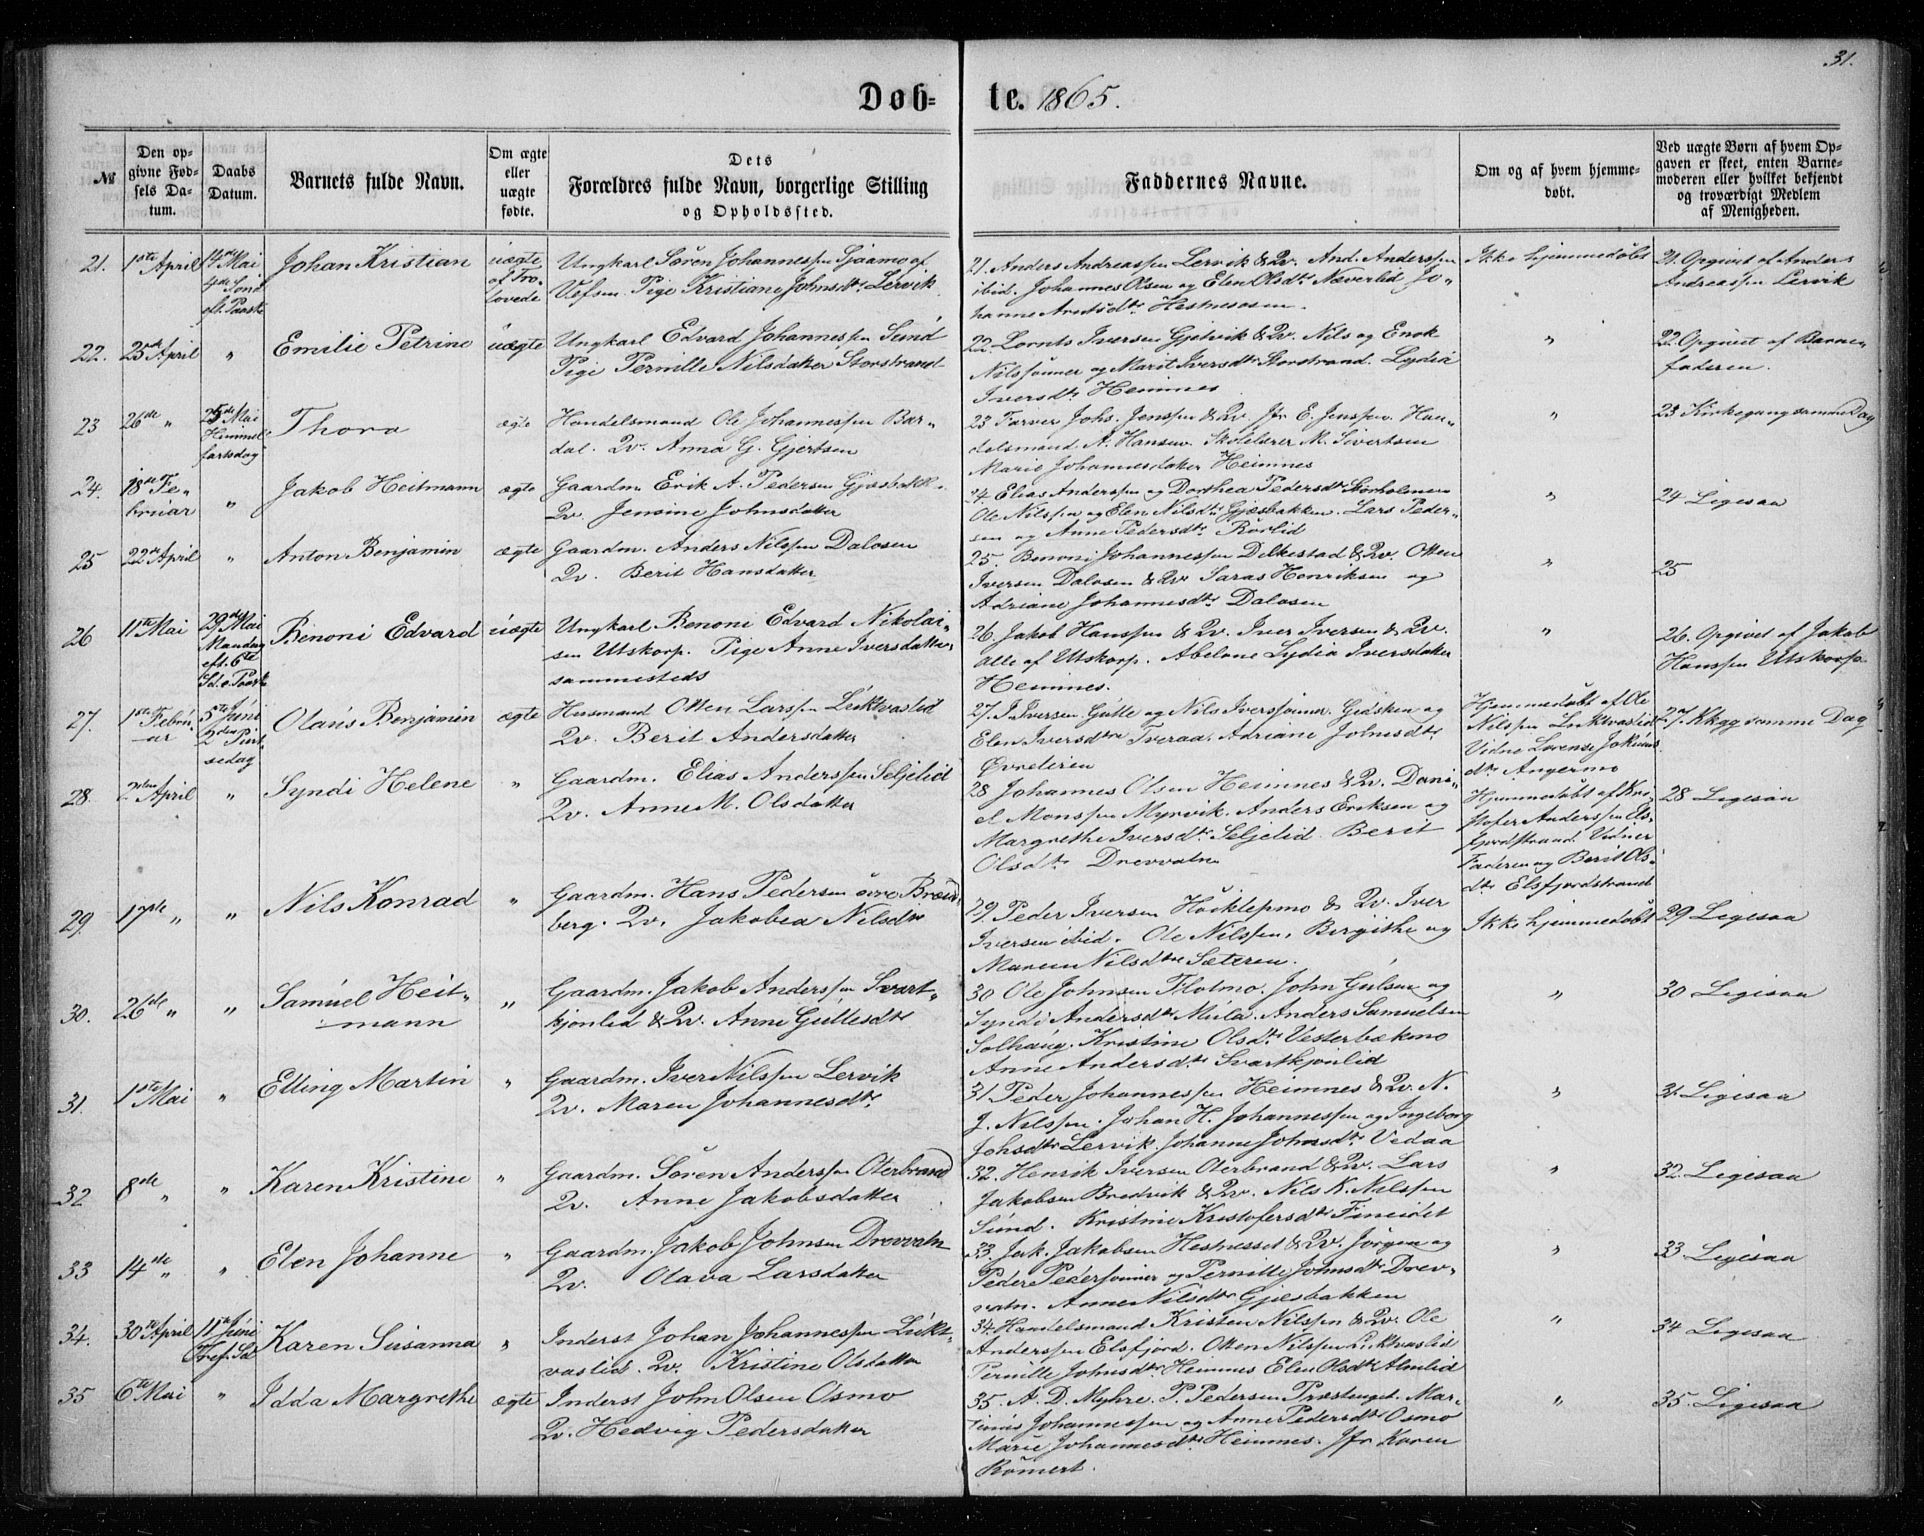 31.
Døb-
te. 1865.
№
Den op-
givne Fød-
sels Da-
tum.
Daabs
Datum.
Barnets fulde Navn.
Om ægte
eller
uægte
fødte.
Dets
Forældres fulde Navn, borgerlige Stilling
og Opholdssted.
Faddernes Navne.
Om og af hvem hjemme-
døbt.
Ved uægte Børn af hvem Op-
gaven er skeet, enten Barne-
moderen eller hvilket bekjendt
og troværdigt Medlem
af Menigheden.
21.
1ste April
14de Mai
4de Sønd
eft. Paaske
Johan Kristian
uægte
af Tro-
lovede
Ungkarl Søren Johannessen Sjaamo af
Vefsen. Pige Kristiane Johnsdtr Lervik
21. Anders Andreassen Lervik & Qv. And. Anderssen
ibid. Johannes Olsen og Elen Olsdtr Næverlid Jo-
hanne Arntsdtr Hestnesosen.
Ikke hjemmedøbt
21. Opgivet af Anders
Andreassen Lervik
22.
23de April
"
Emilie Petrine
uægte
Ungkarl Edvard Johannessen Sund
Pige Pernille Nilsdatter Storstrand
22. Lornts Iversen Gjelvik & Qv. Nils og Enok
Nilssønner og Marit Iversdtr Storstrand. Lydia
Iversdtr Hemnes
"
22. Opgivet af Barne-
faderen.
23
26de "
25de Mai
Himmel-
fartsdag
Thora
ægte
Handelsmand Ole Johannessen Bar-
dal. Qv. Anna G. Gjertsen
23 Farver Johs. Jenssen & Qv. Jfr E. Jenssen. Han-
delsmand A. Hansen. Skolelærer M. Sivertsen
Marie Johannesdatter Hemnes
"
23 Kirkegang samme Dag
24.
18de Fe-
bruar
"
Jakob Heitmann
ægte
Gaardm. Erik A. Pedersen Gjesbakk.
Qv. Jensine Johnsdatter
24 Elias Anderssen og Dorthea Pedersdtr Storholmen
Ole Nilssen og Elen Nilsdtr Gjesbakken. Lars Peder-
sen og Anne Pedersdtr Rørlid
"
24 Ligesaa
25
22de April
"
Anton Benjamin
ægte
Gaardm. Anders Nilssen Dalosen
Qv. Berit Hansdatter
25. Benoni Johannessen Dilkestad & Qv. Otten
Iversen Dalosen & Qv Saras Henriksen og
Adriane Johannesdtr Dalosen
"
25
26
11te Mai
29de Mai
Mandag
eft. 6te
Sd. e. Paaske
Benoni Edvard
uægte
Ungkarl Benoni Edvard Nikolai-
sen Utskorp. Pige Anne Iversdatter
sammesteds
26. Jakob Hanssen & Qv. Iver Iversen & Qv.
alle af Utskorp. Abelone Lydia Iversdatter
Hemnes.
"
26. Opgivet af Jakob
Hanssen Utskorp
27.
1ste Febru-
ar
5te Juni
2den Pint-
sedag
Olaus Benjamin
ægte
Husmand Otten Larssen Luktvaslid
Qv. Berit Andersdatter
27. I. Iversen Gulle og Nils Iverssønner Geisken og
Elen Iversdtr Tveraa. Adriane Johnsdtr
Øvreleren
Hjemmedøbt af Ole
Nilssen Luktvaslid
Vidne Lorense Jokums
dtr Angermo
27. Kkgg samme Dag
28.
2den April
"
Syndi Helene
"
Gaardm. Elias Anderssen Seljelid
Qv. Anne M. Olsdatter
28 Johannes Olsen Hemnes & Qv. Dani-
el Monssen Myrvik. Anders Eriksen og
Margrethe Iversdtr Seljelid. Berit
Olsdtr Drevvatn
Hjemmedøbt af Kri-
stofer Anderssen Els-
fjordstrand. Vidner
Faderen og Berit Ols-
dtr Elsfjordstrand
28 Ligesaa
29.
17de "
"
Nils Konrad
"
Gaardm. Hans Pedersen øvre Bræn-
berg. Qv. Jakobea Nilsdtr
29. Peder Iversen Høiklepmo & Qv. Iver
Iversen ibid. Ole Nilssen, Bergithe og
Maren Nilsdtre Sæteren.
Ikke hjemmedøbt
29 Ligesaa
30.
26de "
"
Samuel Heit-
mann
"
Gaardm. Jakob Anderssen Svart-
kjønlid & Qv. Anne Gullesdtr
30 Ole Johnsen Flotmo. John Gulsen og
Syndi Andersdtr Mula. Anders Samuelsen
Solhaug. Kristine Olsdtr Vesterbækmo
Anne Andersdtr Svartkjønlid
"
30 Ligesaa
31.
1ste Mai
"
Elling Martin
"
Gaardm. Iver Nilssen Lervik
Qv. Maren Johannesdtr.
31 Peder Johannessen Hemnes & Qv. N.
J. Nilssen. Johan H. Johannessen og Ingeborg
Johsdtr Lervik. Johanne Johnsdtr Vedaa
"
31. Ligesaa
32
8de "
"
Karen Kristine
"
Gaardm. Søren Anderssen Oterbrand
Qv. Anne Jakobsdatter
32. Henrik Iversen Oterbrand & Qv. Lars
Jakobsen Bredvik & Qv. Nils K. Nilssen
Sund. Kristine Kristofersdtr Fineidet
"
32. Ligesaa
33
14de "
"
Elen Johanne
"
Gaardm. Jakob Johnsen Drevvatn
Qv. Olava Larsdatter
33. Jak. Jakobsen Hestnesset & Qv. Jørgen og
Peder Pederssønner og Pernille Johnsdtr Drev-
vatn. Anne Nilsdtr Gjesbakken
"
33 Ligesaa
34.
30te April
11te Juni
Tref. Sd
Karen Susanna
"
Inderst Johan Johannessen Lukt-
vaslid. Qv. Kristine Olsdatter
34. Handelsmand Kristen Nilssen & Qv. Ole
Anderssen Elsfjord. Otten Nilssen Luktvaslid
Pernille Johnsdtr Hemnes Elen Olsdtr Almlid
"
34 Ligesaa
35
6te Mai
"
Idda Margrethe
ægte
Inderst John Olsen Osmo
Qv. Hedvig Pedersdatter
35. A. D. Myhre. P. Pedersen Præstenget. Mar-
tinus Johannessen og Anne Pedersdtr Osmo
Marie Johannesdtr Hemnes. Jfr Karen
Rømert.
"
35. Ligesaa